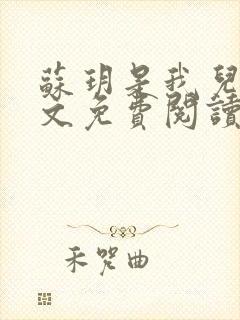 蘇玥是我兒
文免費閱讀
禾咒曲